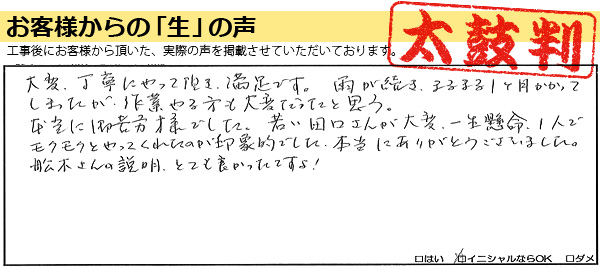 お客様からの「生」の声
工事後にお客様から頂いた、実際の声を掲載させていただいております。
太鼓判
大変、丁寧にやって頂き、満足です。 雨が続き、まるまる1ヶ月かかって
しまったが、作業やる方も大変だったと思う。
本当に御苦労様でした。若い田口さんが大変、一生懸命、1人で
モクモクとやってくれたのが印象的でした。本当にありがとうございました。
船木さんの説明、とても良かったですよ!
□はい ☑イニシャルならOK □ダメ